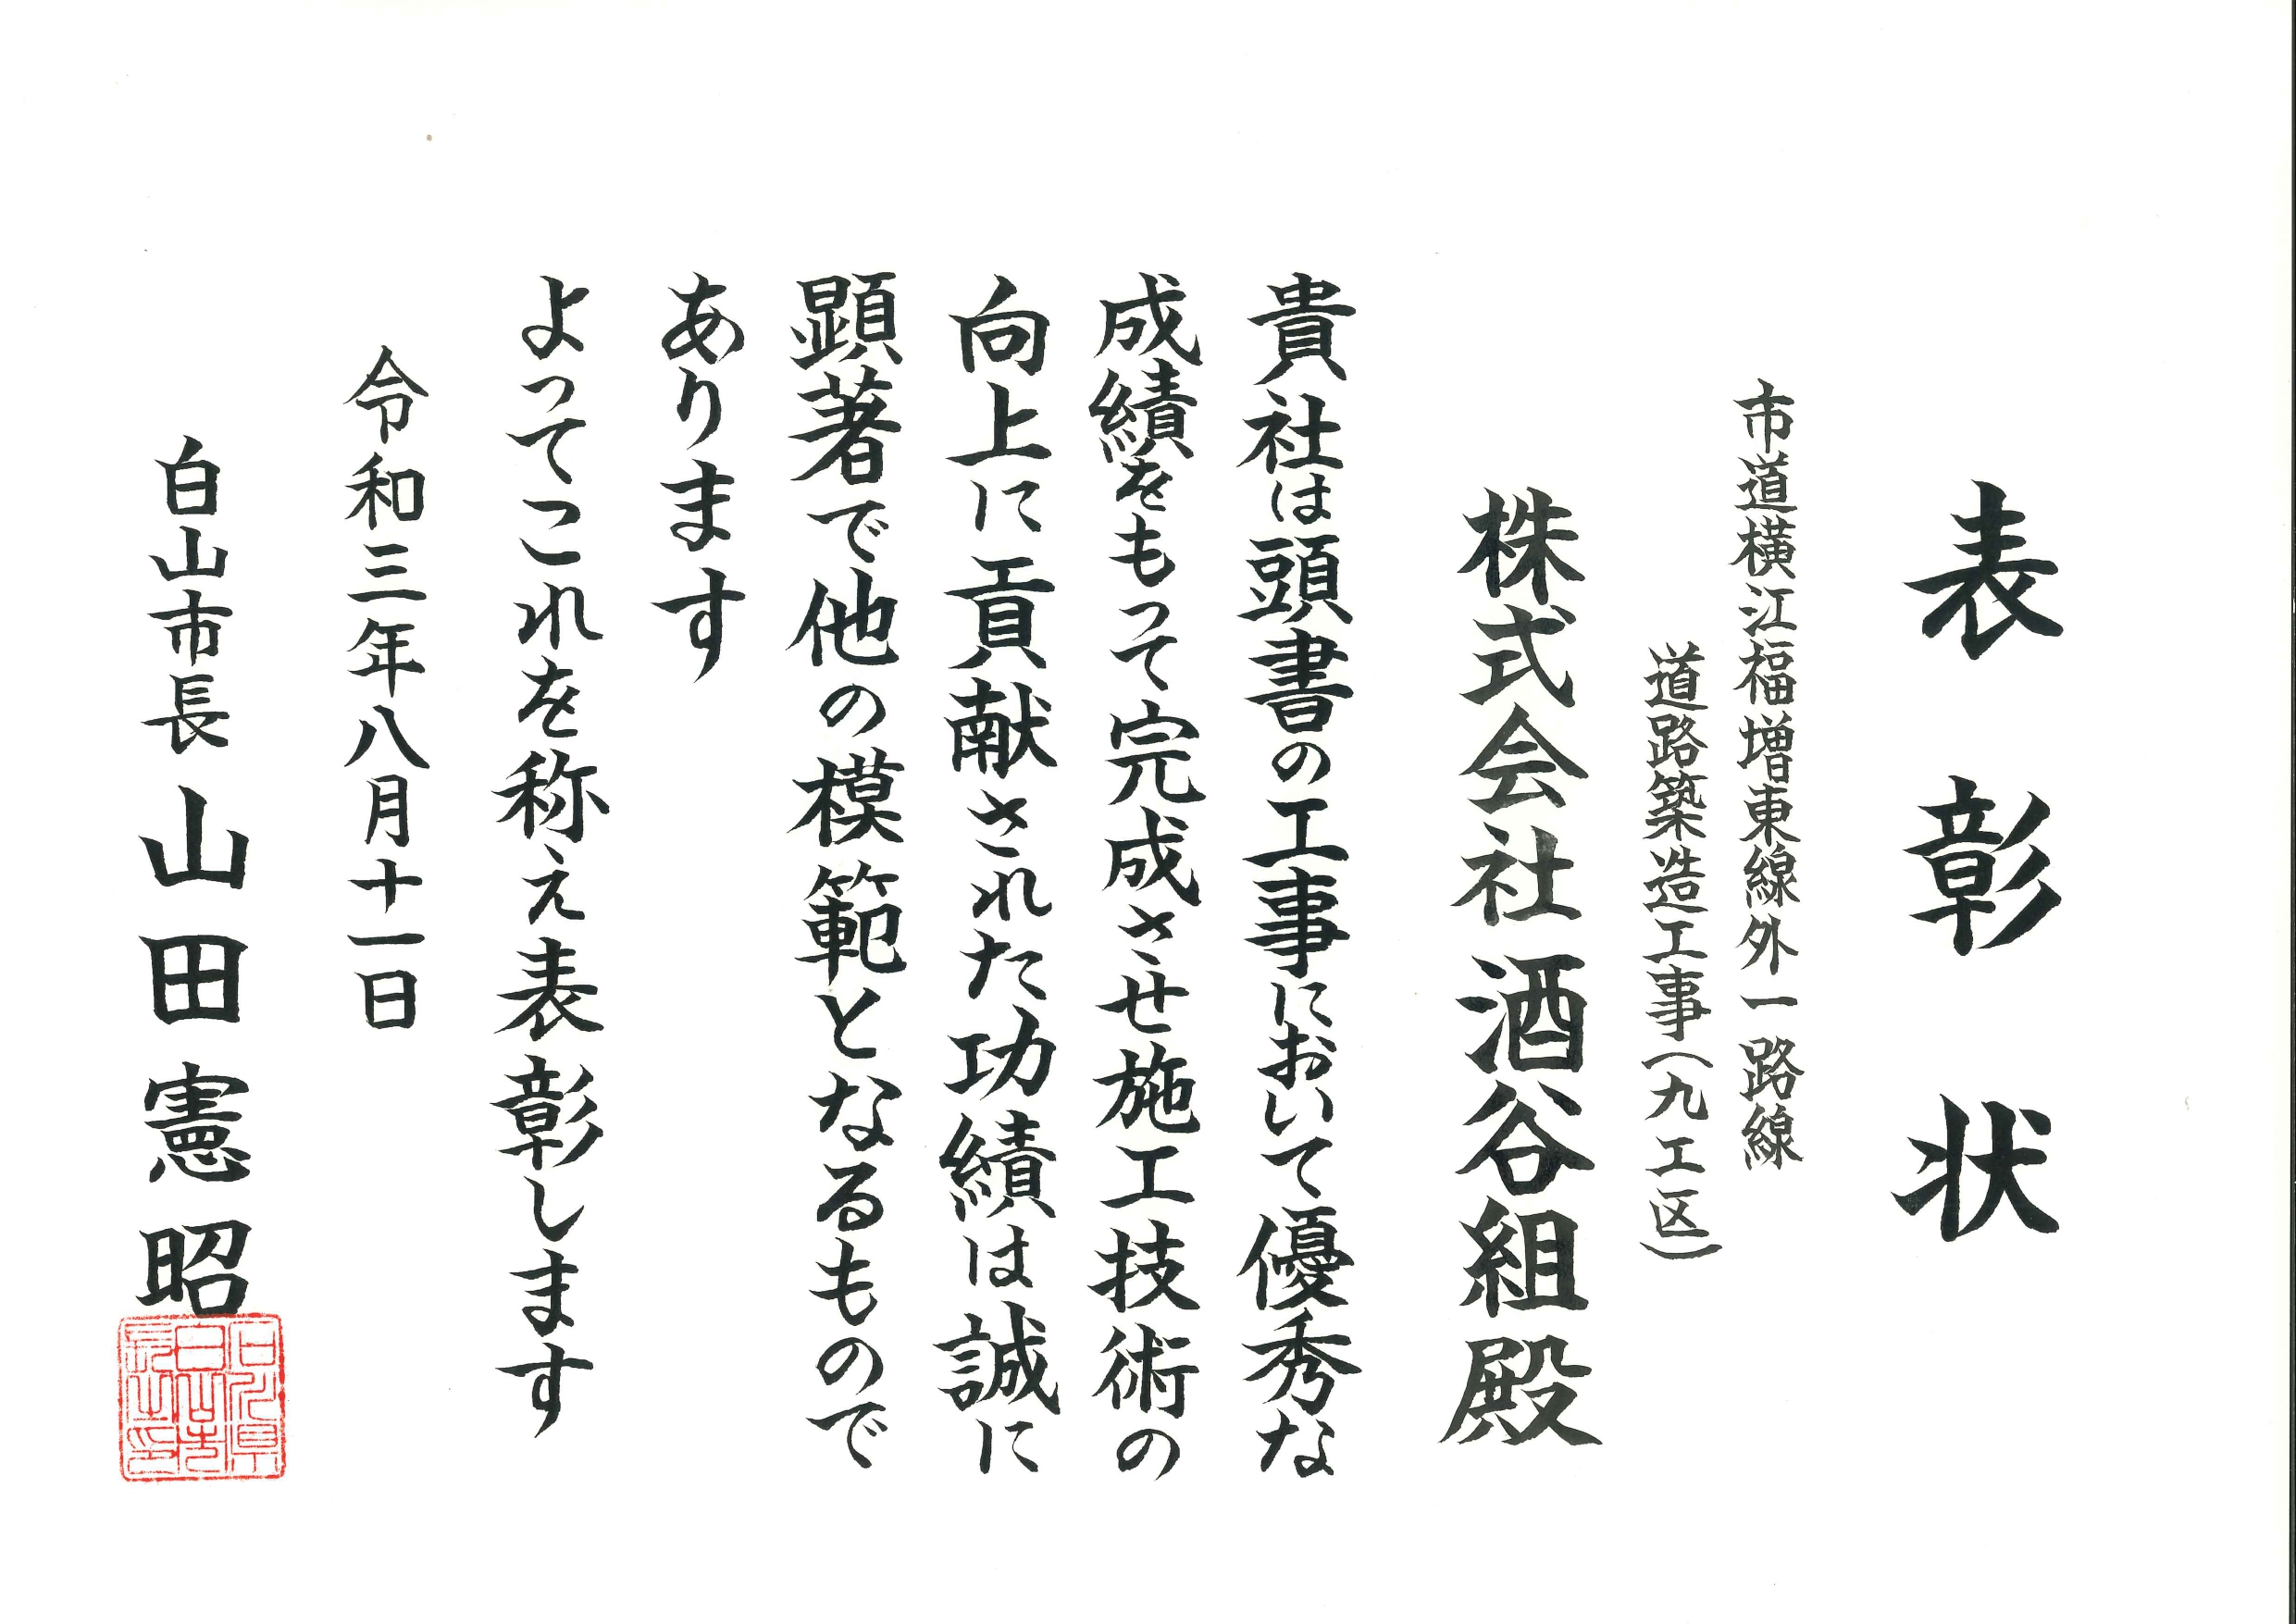 表彰状
市道横江福増東線外一路線
道路築造工事(九工区)
株式会社酒谷組殿
貴社は頭書の工事において優秀な
成績をもって完成させ施工技術の
向上に貢献された功績は誠に
顕著で他の模範となるもので
あります
よってこれを称え表彰します
令和三年八月十一日
白山市長 山田憲昭
石川県
白山市
長之印